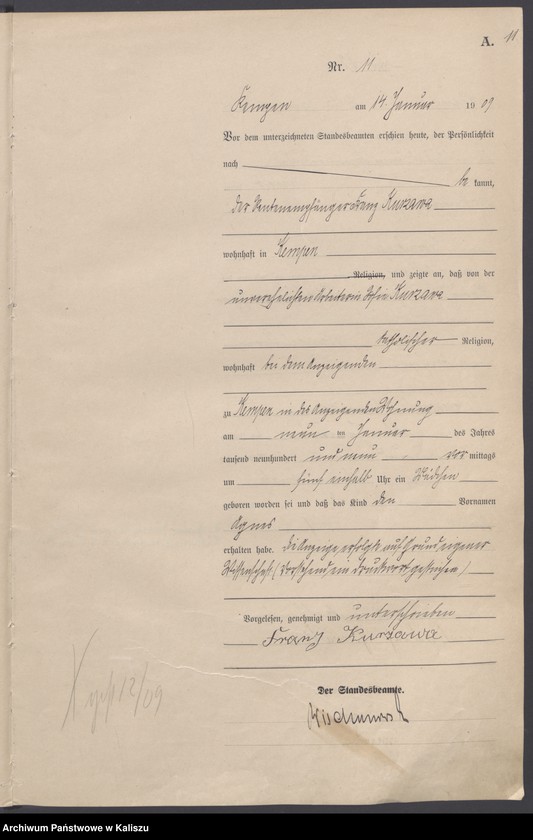 A. 11
Nr. 11
Kempen am 14. Januar 19 09
Vor dem unterzeichneten Standesbeamten erschien heute, der Persönlichkeit
nach be kannt,
der Rentenempfänger Franz Kurzawa
wohnhaft in Kempen
Religion, und zeigte an, daß von der
unverehelichten Arbeiterin Kurzawa
katholischer Religion,
wohnhaft bei dem Anzeigenden
zu Kempen in des Anzeigenden Wohnung
am neun ten Januar des Jahres
tausend neunhundert und neun vor mittags
um fünf einhalb Uhr ein Mädchen
geboren worden sei und daß das Kind den Vornamen
Agnes
erhalten habe. Die Anzeige erfolgte auf Grund eigener
Wissenschaft (Vorstehend ein Druckwort gestrichen)
Vorgelesen, genehmigt und unterschrieben
Franz Kurzawa
Der Standesbeamte.
12/09
Archiwum Państwowe w Kaliszu